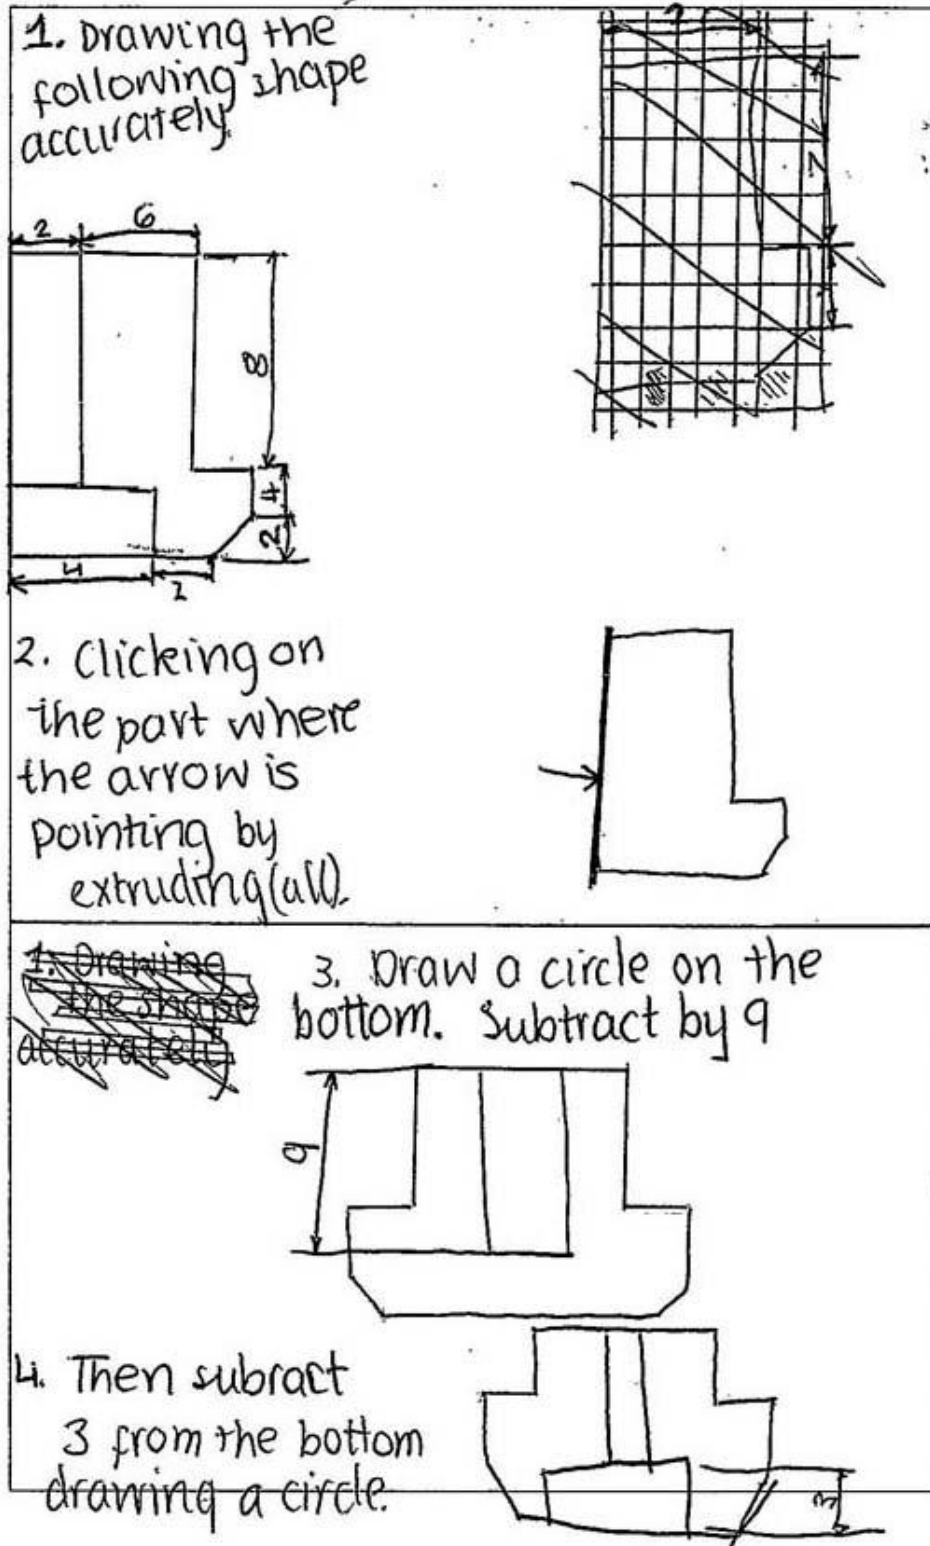 1. Drawing the
following shape
accurately.
2
6
8
4
2
4
2. Clicking on
the part where
the arrow is
pointing by
extruding (all).
3. Draw a circle on the
bottom. Subtract by 9
9
4. Then subract
3 from the bottom
drawing a circle.
3